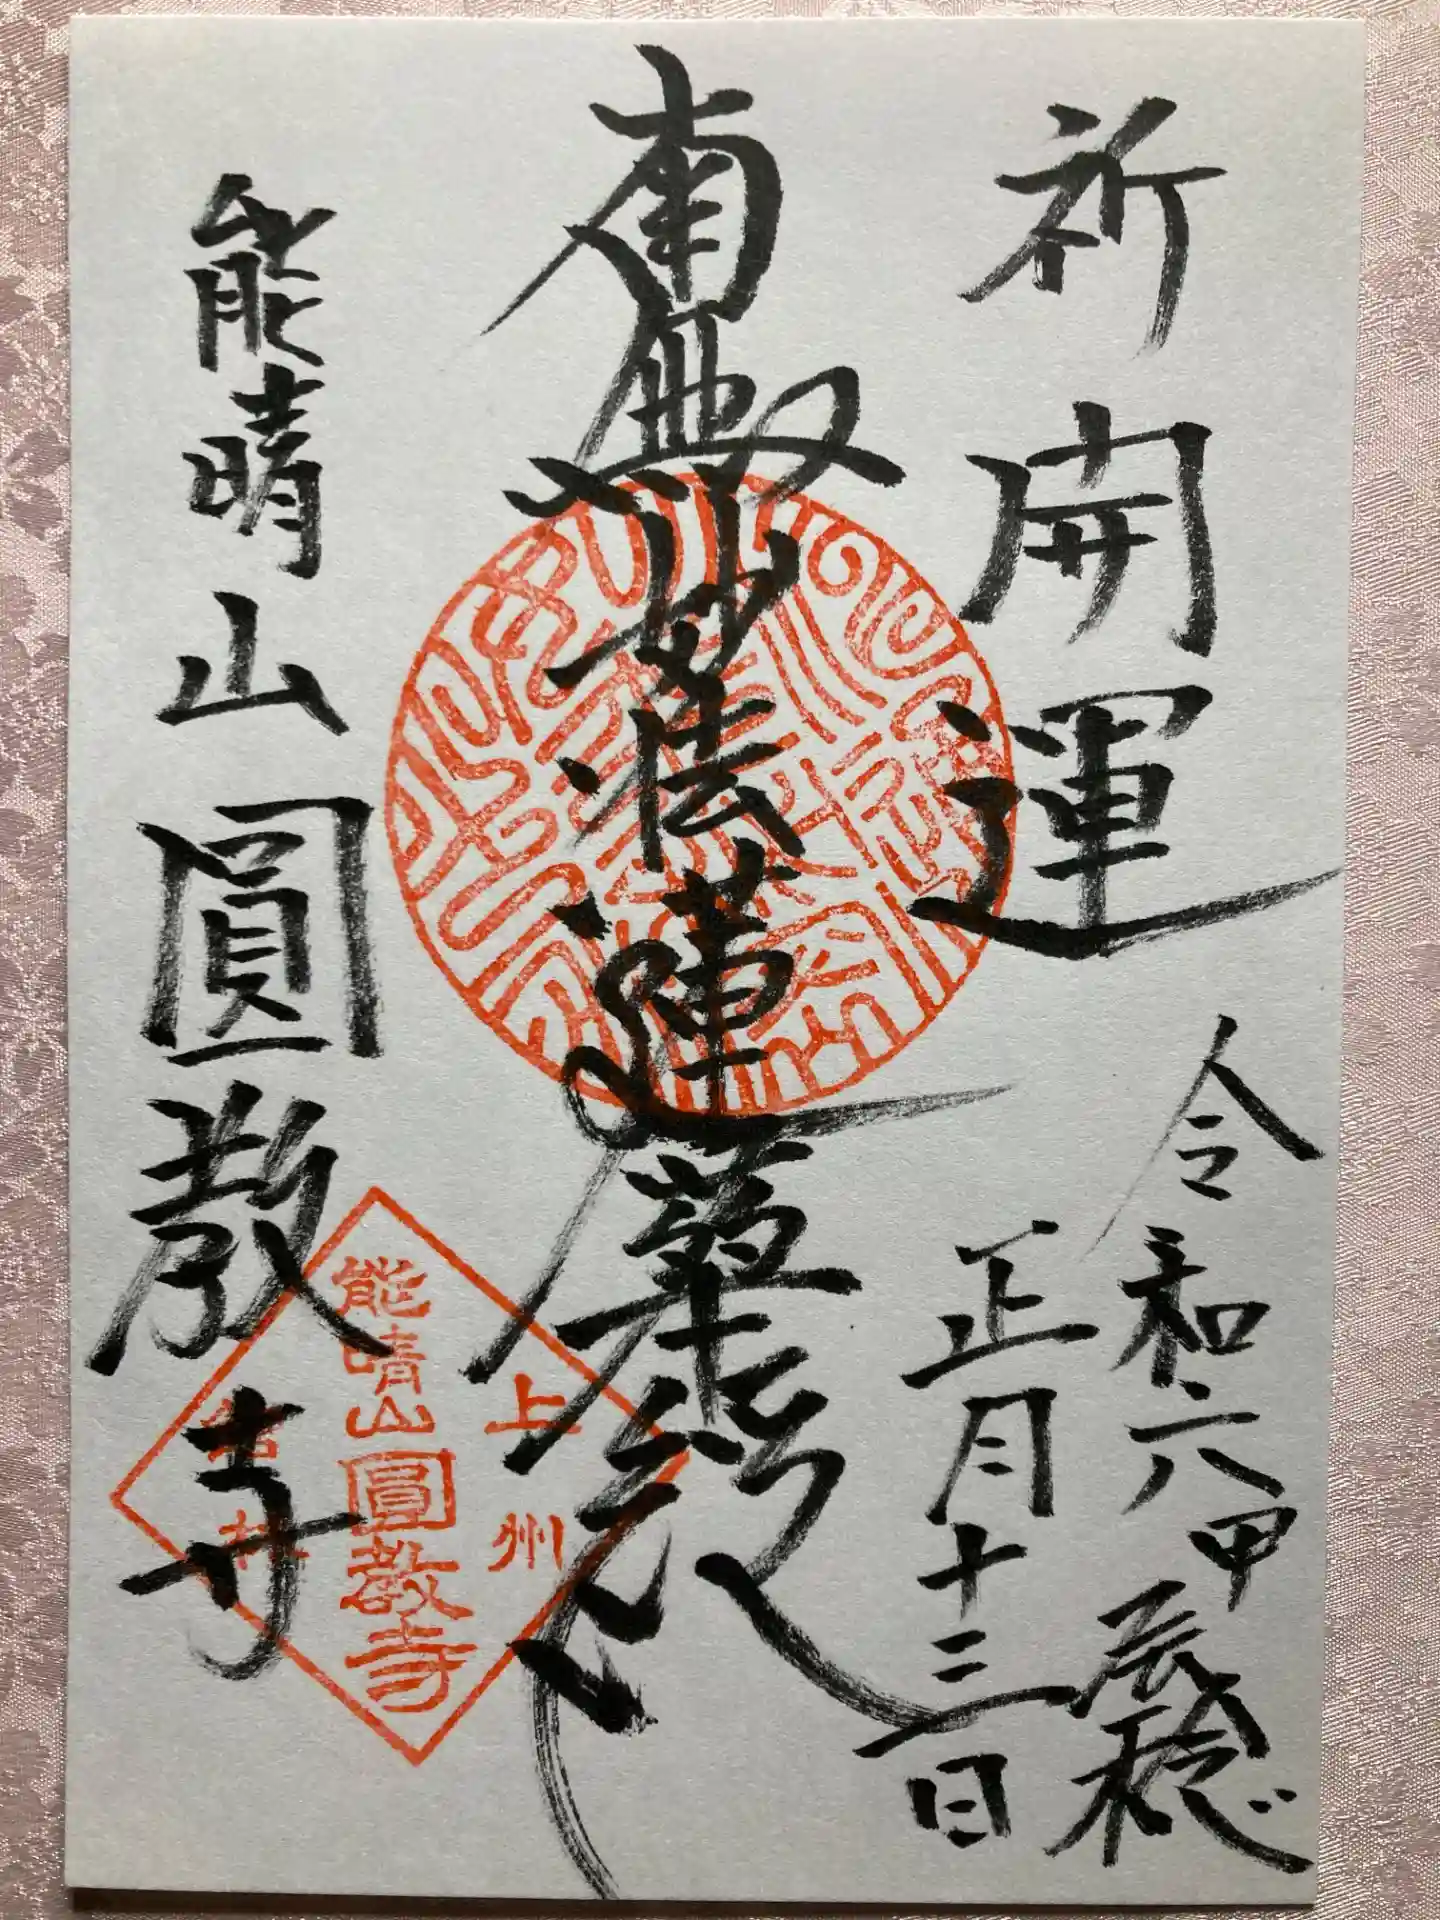 祈開運
令和六甲辰歳稔
正月十三日
南無妙法蓮華經
能晴山圓教寺
上州
能晴山圓教寺